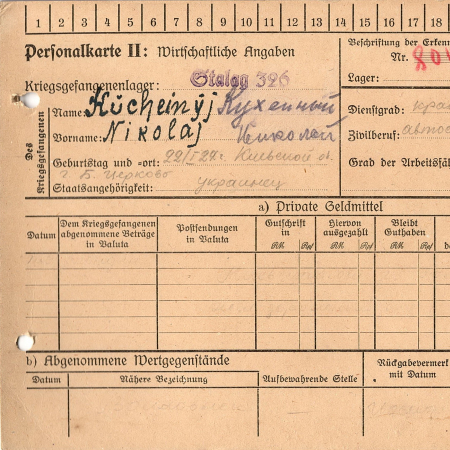 1 2 3 4 5 6 7 8 9 10 11 12 13 14 15 16 17 18
Personalkarte II: Wirtschaftliche Angaben
Beschriftung der Erken
Nr. 804
Kriegsgefangenenlager: Stalag 326
Lager:
Des Kriegsgefangenen
Name: Kucheinyj Кухейный
Dienstgrad: кра
Vorname: Nikolaj Николай
Zivilberuf: авто
Geburtstag und =ort: 22/I 24 г. Киевской об.
Grad der Arbeitsfäh
г. Б. Церковь
Staatsangehörigkeit: украинец
a) Private Geldmittel
Datum
Dem Kriegsgefangenen abgenommene Beträge in Valuta
Postsendungen in Valuta
Gutschrift in
RM Rpf
Hiervon ausgezahlt
RM Rpf
Bleibt Guthaben
RM Rpf
b) Abgenommene Wertgegenstände
Rückgabevermerk mit Datum
Datum
Nähere Bezeichnung
Aufbewahrende Stelle